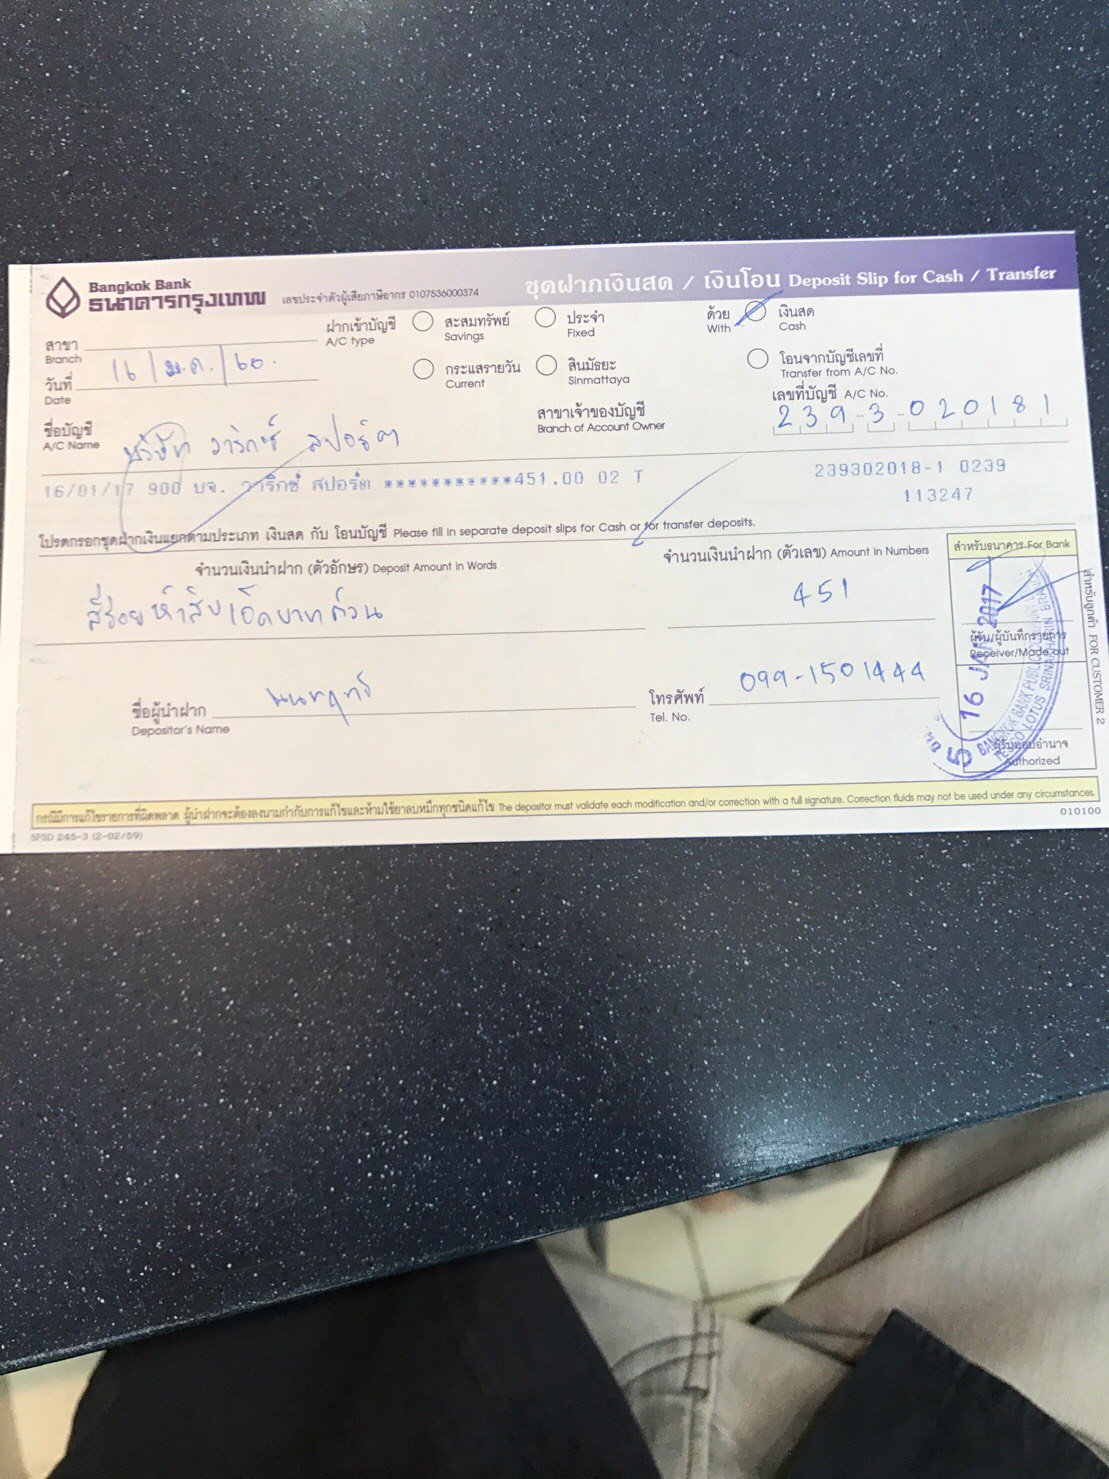 Bangkok Bank
ธนาคารกรุงเทพ
เลขประจำตัวผู้เสียภาษีอากร 0107536000374
ชุดฝากเงินสด / เงินโอน Deposit Slip for Cash / Transfer
สาขา
Branch
ฝากเข้าบัญชี
A/C type
สะสมทรัพย์
Savings
ประจำ
Fixed
ด้วย
With
เงินสด
Cash
วันที่ 16 / ม.ค. / 60.
Date
กระแสรายวัน
Current
สินมัธยะ
Sinmattaya
โอนจากบัญชีเลขที่
Transfer from A/C No.
ชื่อบัญชี
A/C Name
บริษัท วาริกซ์ สปอร์ต
สาขาเจ้าของบัญชี
Branch of Account Owner
เลขที่บัญชี A/C No.
239-3-020181
16/01/17 900 บจ. วาริกซ์ สปอร์ต ***********451.00 02 T
239302018-1 0239
113247
โปรดกรอกชุดฝากเงินแยกตามประเภท เงินสด กับ โอนบัญชี Please fill in separate deposit slips for Cash or for transfer deposits.
จำนวนเงินนำฝาก (ตัวอักษร) Deposit Amount in Words
สี่ร้อยห้าสิบเอ็ดบาทถ้วน
จำนวนเงินนำฝาก (ตัวเลข) Amount in Numbers
451
สำหรับธนาคาร For Bank
ผู้รับ/ผู้บันทึกรายการ
Receiver/Made out
16 JAN 2017
5
BANGKOK BANK PUBLIC
TESCO LOTUS SRINAKHARIN BRANCH
ผู้รับมอบอำนาจ
Authorized
สำหรับลูกค้า FOR CUSTOMER 2
ชื่อผู้นำฝาก
Depositor's Name
โทรศัพท์ 099-1501444
Tel. No.
กรณีมีการแก้ไขรายการที่ผิดพลาด ผู้นำฝากจะต้องลงนามกำกับการแก้ไขและห้ามใช้ยาลบหมึกทุกชนิดแก้ไข The depositor must validate each modification and/or correction with a full signature. Correction fluids may not be used under any circumstances.
SFSD 245-3 (2-02/59)
010100